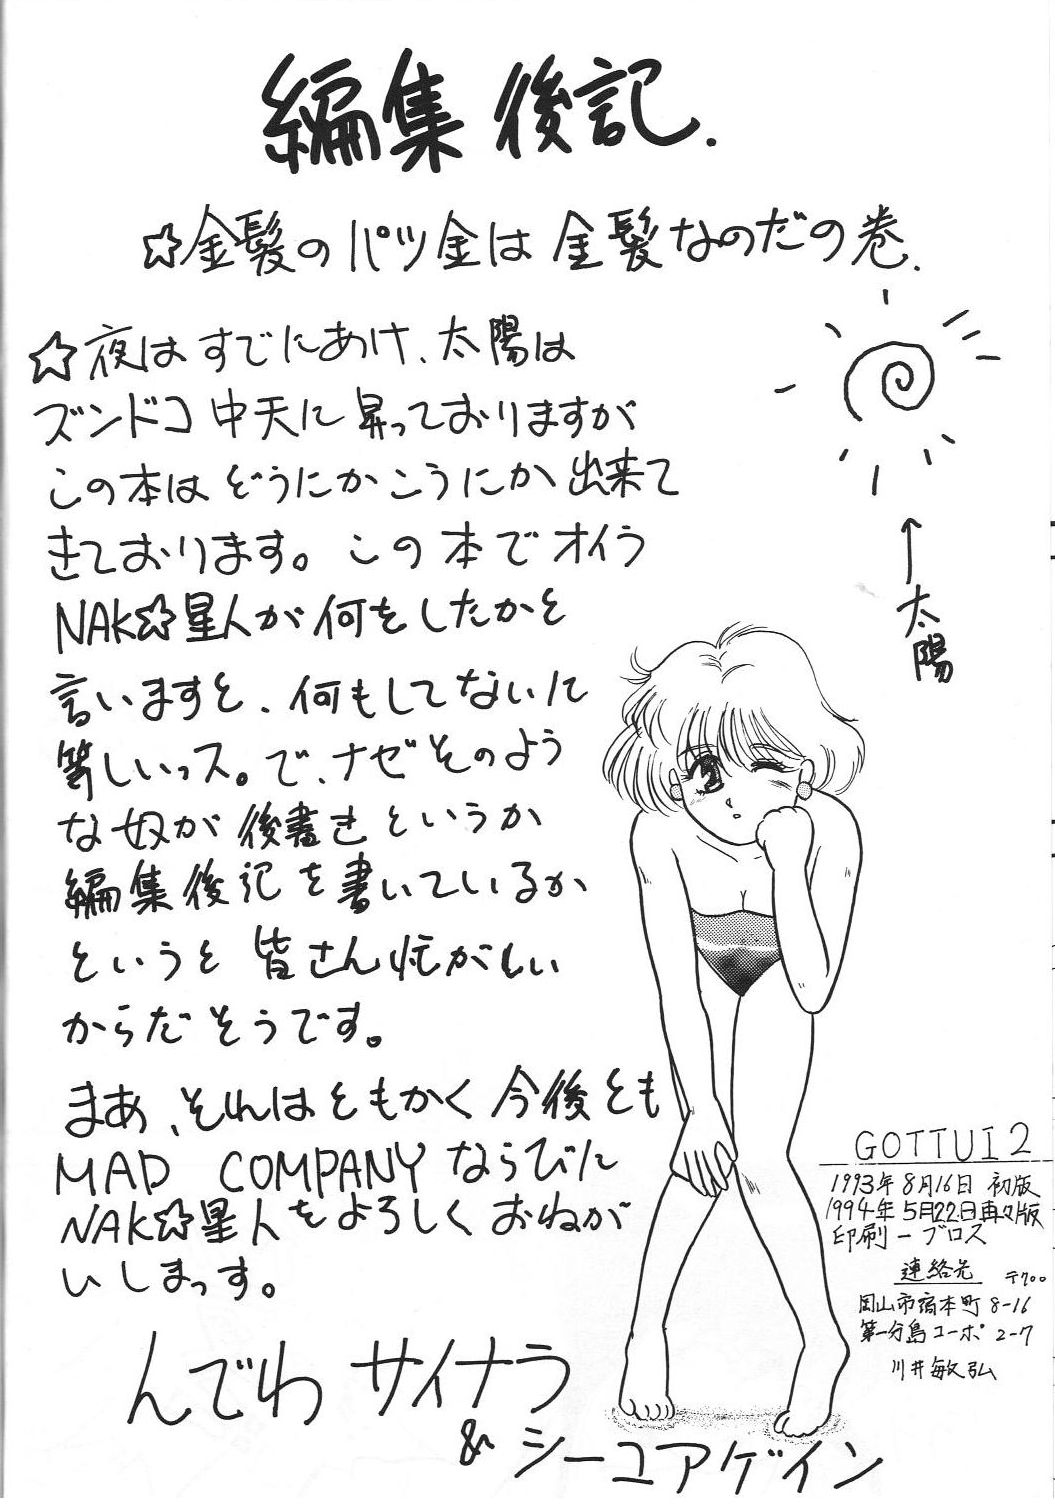 編集後記.
☆金髪のパツ金は金髪なのだの巻.
☆夜はすでにあけ、太陽は
ズンドコ中天に昇っておりますが
この本はどうにかこうにか出来て
きております。この本でオイラ
NAK☆星人が何をしたかと
言いますと、何もしてないに
等しいっス。で、ナゼそのよう
な奴が後書きというか
編集後記を書いているか
というと皆さん忙がしい
からだそうです。
まあ、それはともかく今後とも
MAD COMPANYならびに
NAK☆星人をよろしくおねが
いしまっす。
んでわ サイナラ
& シーユアゲイン
↑太陽
GOTTUI2
1993年8月16日 初版
1994年5月22日再々版
印刷ーブロス
連絡先 〒700
岡山市宿本町8-16
第一分島コーポ 2-7
川井敏弘